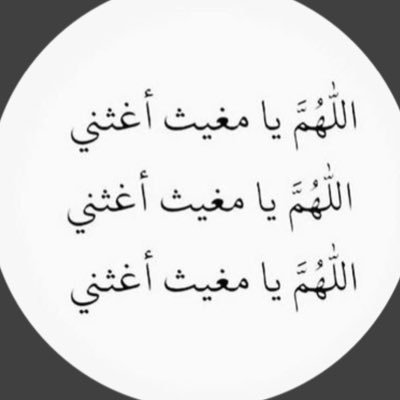 اللّٰهُمَّ يا مغيث أغثني
اللّٰهُمَّ يا مغيث أغثني
اللّٰهُمَّ يا مغيث أغثني